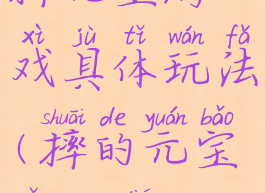 xì jù tǐ wán fǎ
戏具体玩法
shuāi de yuán bǎo
(摔的元宝